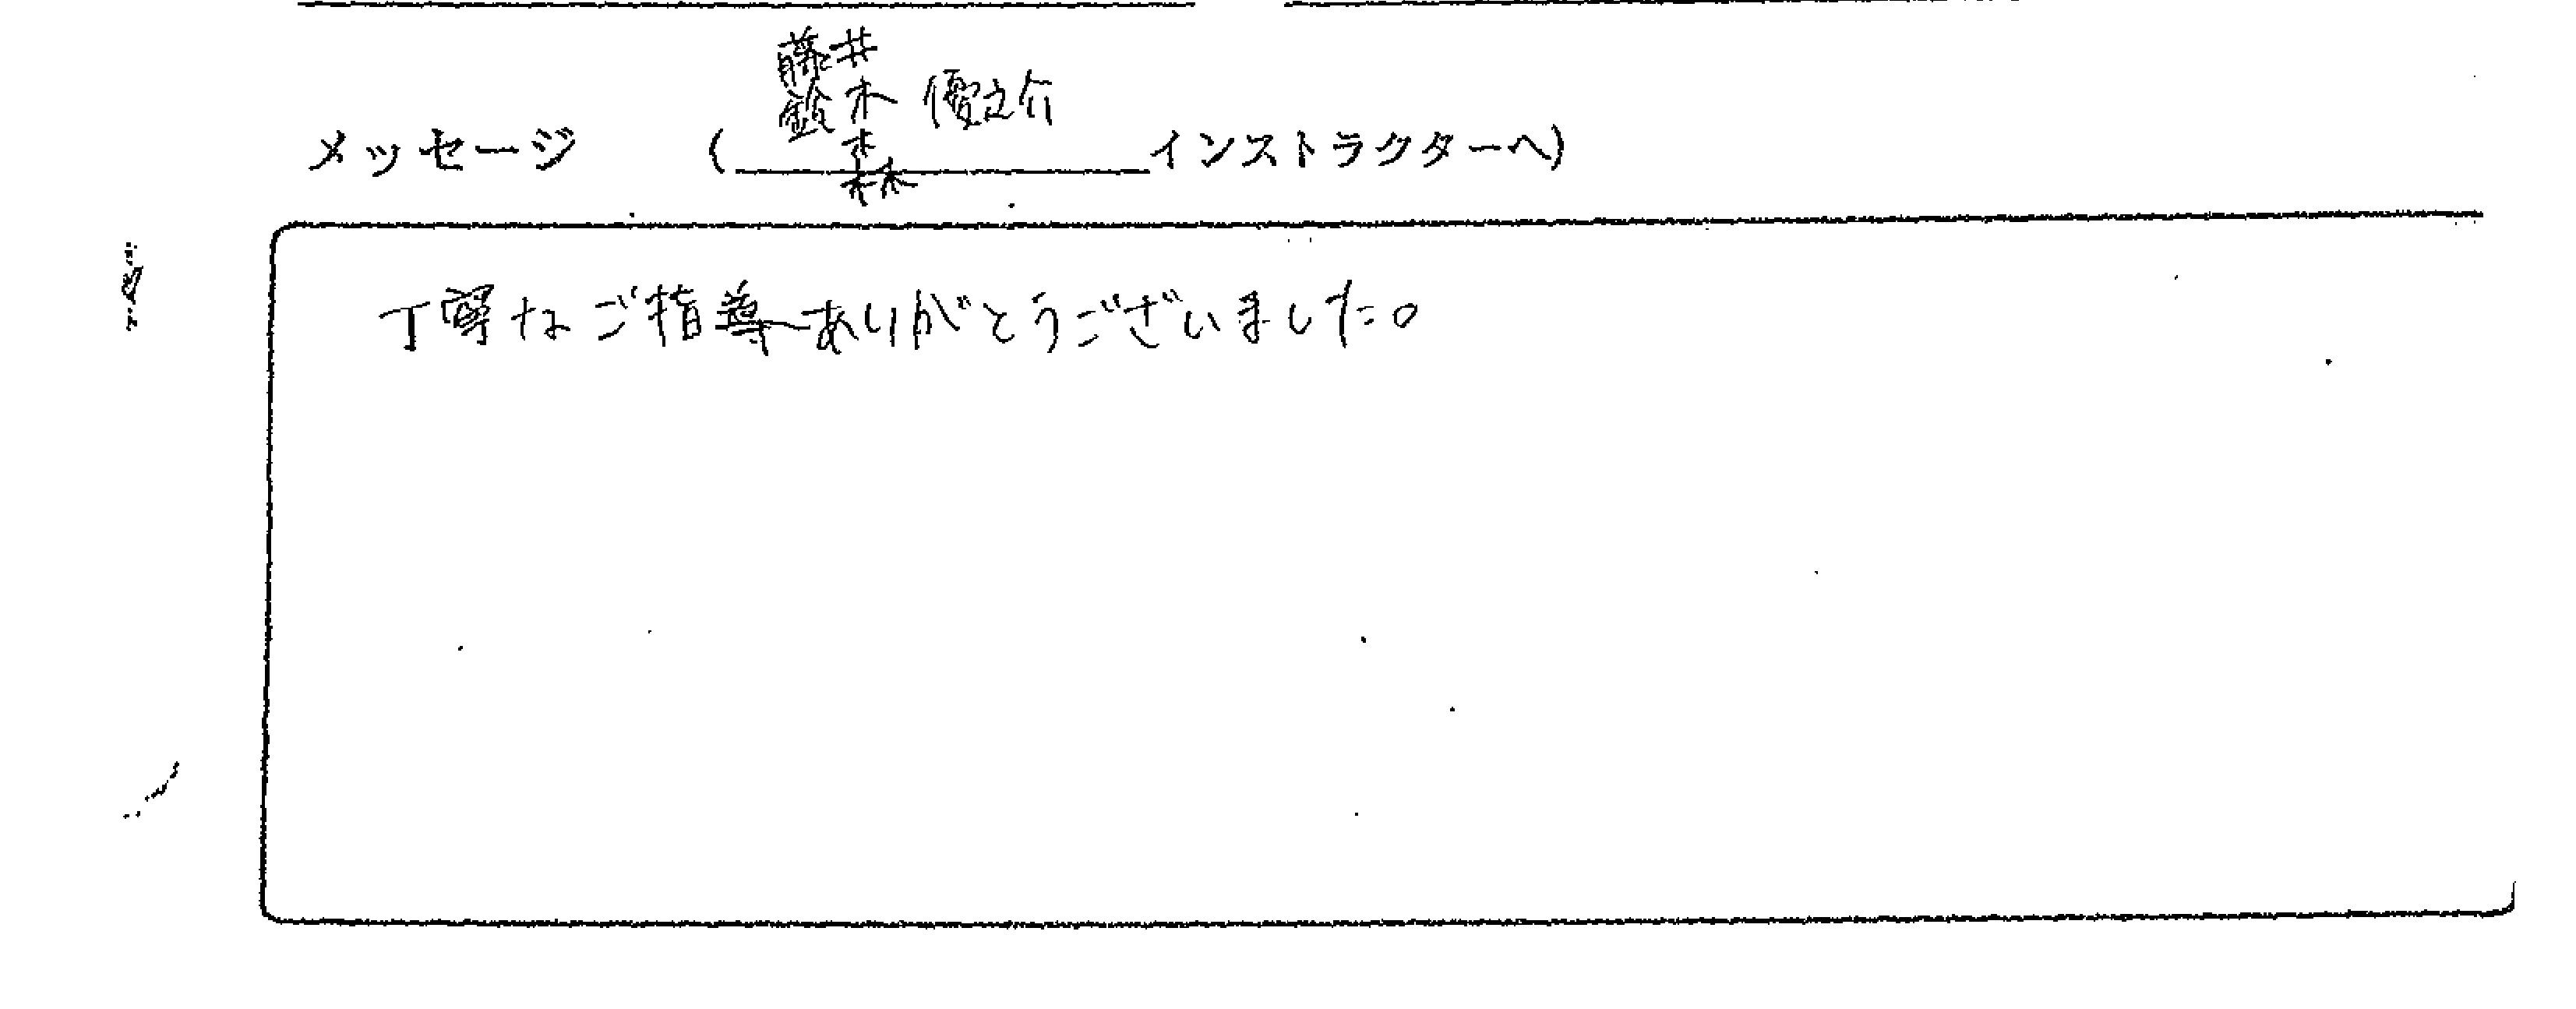 藤井
鈴木 優之介
森
メッセージ (インストラクターへ)
丁寧なご指導ありがとうございました。